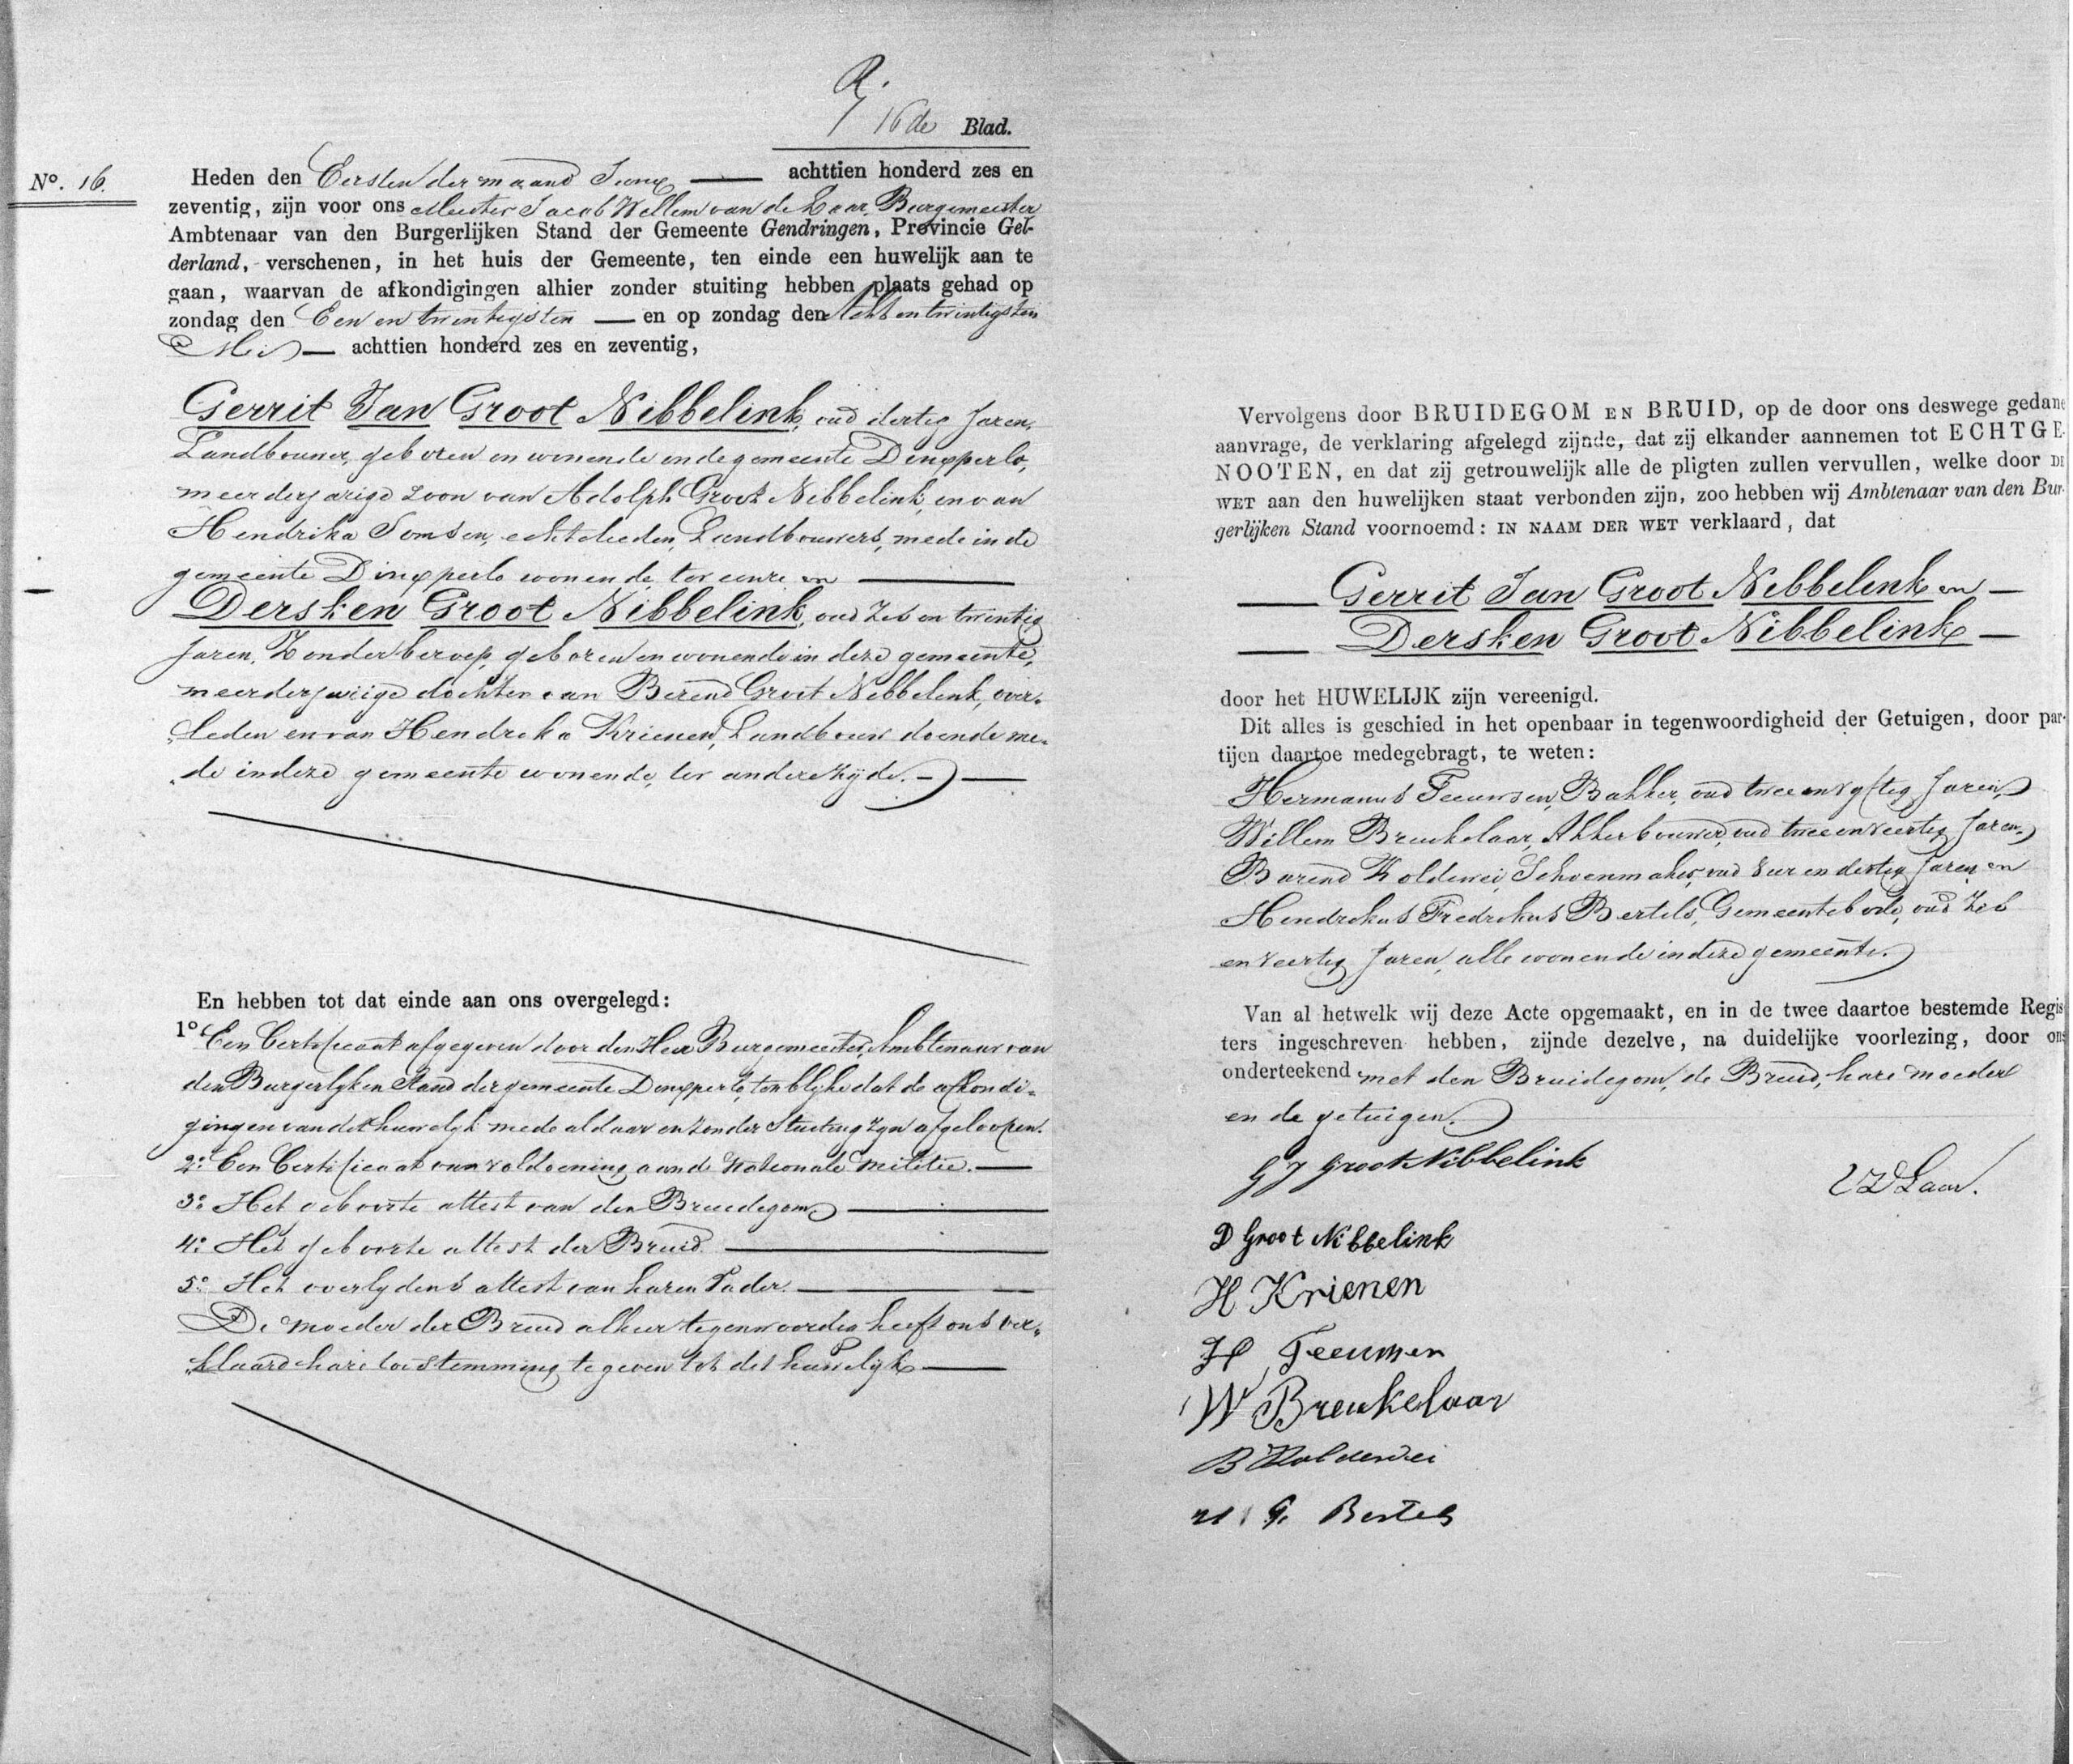 R.
16de Blad.
No. 16.
Heden den Eersten der maand Junij achttien honderd zes en
zeventig, zijn voor ons Meester Jacob Willem van de Laar, Burgemeester
Ambtenaar van den Burgerlijken Stand der Gemeente Gendringen, Provincie Gel-
derland, verschenen, in het huis der Gemeente, ten einde een huwelijk aan te
gaan, waarvan de afkondigingen alhier zonder stuiting hebben plaats gehad op
zondag den Een en twintigsten en op zondag den Acht en twintigsten
Mei achttien honderd zes en zeventig,
Gerrit Jan Groot Nibbelink, oud dertig Jaren,
Landbouwer, geboren en wonende in de gemeente Dinxperlo,
meerderjarige zoon van Adolph Groot Nibbelink, en van
Hendrika Somsen, echtelieden, Landbouwers, mede in de
gemeente Dinxperlo wonende, ter eenre en
Dersken Groot Nibbelink, oud Zes en twintig
Jaren, Zonder beroep, geboren en wonende in deze gemeente,
meerderjarige dochter van Berend Groot Nibbelink, over-
„leden en van Hendrika Krienen, Landbouw doende me-
„de in deze gemeente wonende, ter andere zijde.
En hebben tot dat einde aan ons overgelegd:
1o. Een Certificaat afgegeven door den Heer Burgemeester, Ambtenaar van
den Burgerlyken Stand der gemeente Dinxperlo, ten blyke dat de afkondi-
gingen van dit huwelyk mede aldaar en zonder Stuiting zyn afgeloopen.
2o. Een Certificaat van voldoening aan de Nationale Militie.
3o. Het geboorte attest van den Bruidegom
4o. Het geboorte attest der Bruid.
5o. Het overlydens attest van haren Vader.
De moeder der Bruid alhier tegenwoordig heeft ons ver-
„klaard hare toestemming te geven tot dit huwelijk
Vervolgens door BRUIDEGOM EN BRUID, op de door ons deswege gedane
aanvrage, de verklaring afgelegd zijnde, dat zij elkander aannemen tot ECHTGE-
NOOTEN, en dat zij getrouwelijk alle de pligten zullen vervullen, welke door DE
WET aan den huwelijken staat verbonden zijn, zoo hebben wij Ambtenaar van den Bur-
gerlijken Stand voornoemd: IN NAAM DER WET verklaard, dat
Gerrit Jan Groot Nibbelink en
Dersken Groot Nibbelink
door het HUWELIJK zijn vereenigd.
Dit alles is geschied in het openbaar in tegenwoordigheid der Getuigen, door par-
tijen daartoe medegebragt, te weten:
Hermanus Teeuwsen, Bakker, oud twee en vyftig Jaren,
Willem Breukelaar, Akkerbouwer, oud twee en veertig Jaren,
Barend Kolderwei, Schoenmaker, oud vier en dertig Jaren en
Hendrikus Fredrikus Bertels, Gemeentebode, oud Zes
en veertig Jaren, alle wonende in deze gemeente.
Van al hetwelk wij deze Acte opgemaakt, en in de twee daartoe bestemde Regis
ters ingeschreven hebben, zijnde dezelve, na duidelijke voorlezing, door ons
onderteekend met den Bruidegom, de Bruid, hare moeder
en de getuigen.
G J Groot Nibbelink
VD Laar.
D Groot Nibbelink
H Krienen
H Teeuwsen
W Breukelaar
B Kolderwei
Bertels